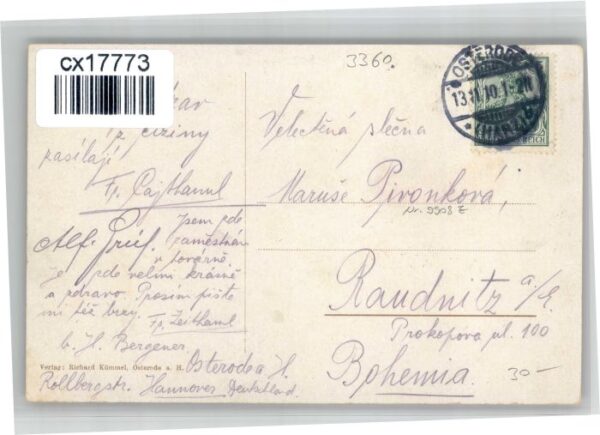 cx17773
3360.
OSTERODE
13.11.10.1-2N
(HARZ)
REICH
Velectěná slečna
Maruše Pivonková,
Nr. 9908 Z
Raudnitz a/E.
Prokopova ul. 100
Bohemia.
30-
z ciziny
zasílají
Fr. Zeithaml
Alf. Grüf.
Jsem zde
zaměstnán
v továrně.
Je zde velmi krásně
a zdravo. Prosím pište
mi též brzy.
Fr. Zeithaml
b. H. Bergener
Osterode a H.
Verlag: Richard Kümmel, Osterode a. H.
Rollbergstr. Hannover Deutschland.